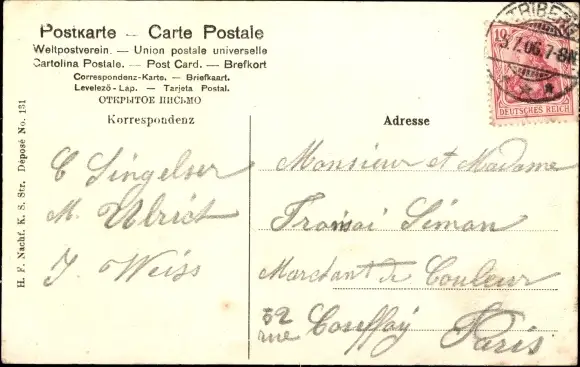 Postkarte — Carte Postale
Weltpostverein. — Union postale universelle
Cartolina Postale. — Post Card. — Brefkort
Correspondenz-Karte. — Briefkaart.
Levelező-Lap. — Tarjeta Postal.
ОТКРЫТОЕ ПИСЬМО
Korrespondenz
Adresse
TRIBERG
3.7.06. 7-8N.
10
DEUTSCHES REICH
H. F. Nachf. K. S. Str. Déposé No. 131
C Singelser
M. Ulrich
J. Weiss
Monsieur et Madame
Simon
Marchant de Couleur
32
rue
Paris